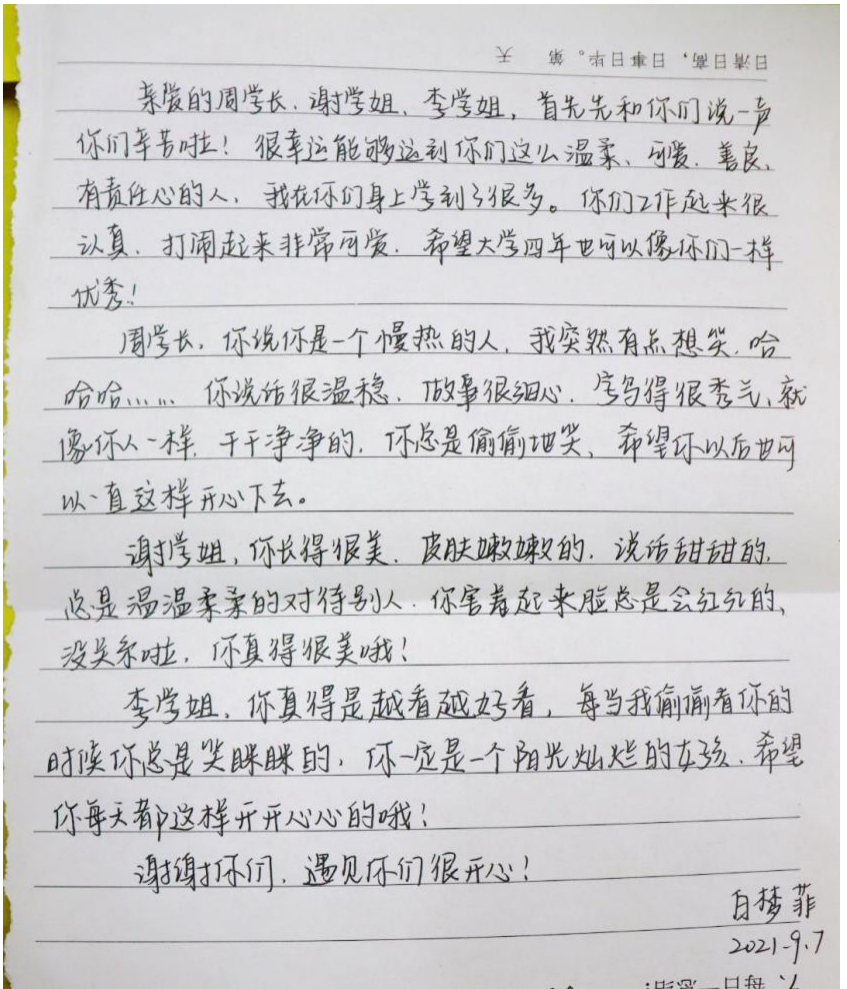 日清日高，日事日毕。第 天
亲爱的周学长、谢学姐、李学姐，首先先和你们说一声
你们辛苦啦！很幸运能够遇到你们这么温柔、可爱、善良、
有责任心的人，我在你们身上学到了很多。你们工作起来很
认真，打闹起来非常可爱，希望大学四年也可以像你们一样
优秀！
周学长，你说你是一个慢热的人，我突然有点想笑，哈
哈哈……你说话很温稳，做事很细心，字写得很秀气，就
像你人一样，干干净净的，你总是偷偷地笑，希望你以后也可
以一直这样开心下去。
谢学姐，你长得很美，皮肤嫩嫩的，说话甜甜的，
总是温温柔柔的对待别人，你害羞起来脸总是会红红的，
没关系啦，你真得很美哦！
李学姐，你真得是越看越好看，每当我偷偷看你的
时候你总是笑眯眯的，你一定是一个阳光灿烂的女孩，希望
你每天都这样开开心心的哦！
谢谢你们，遇见你们很开心！
白梦菲
2021.9.7